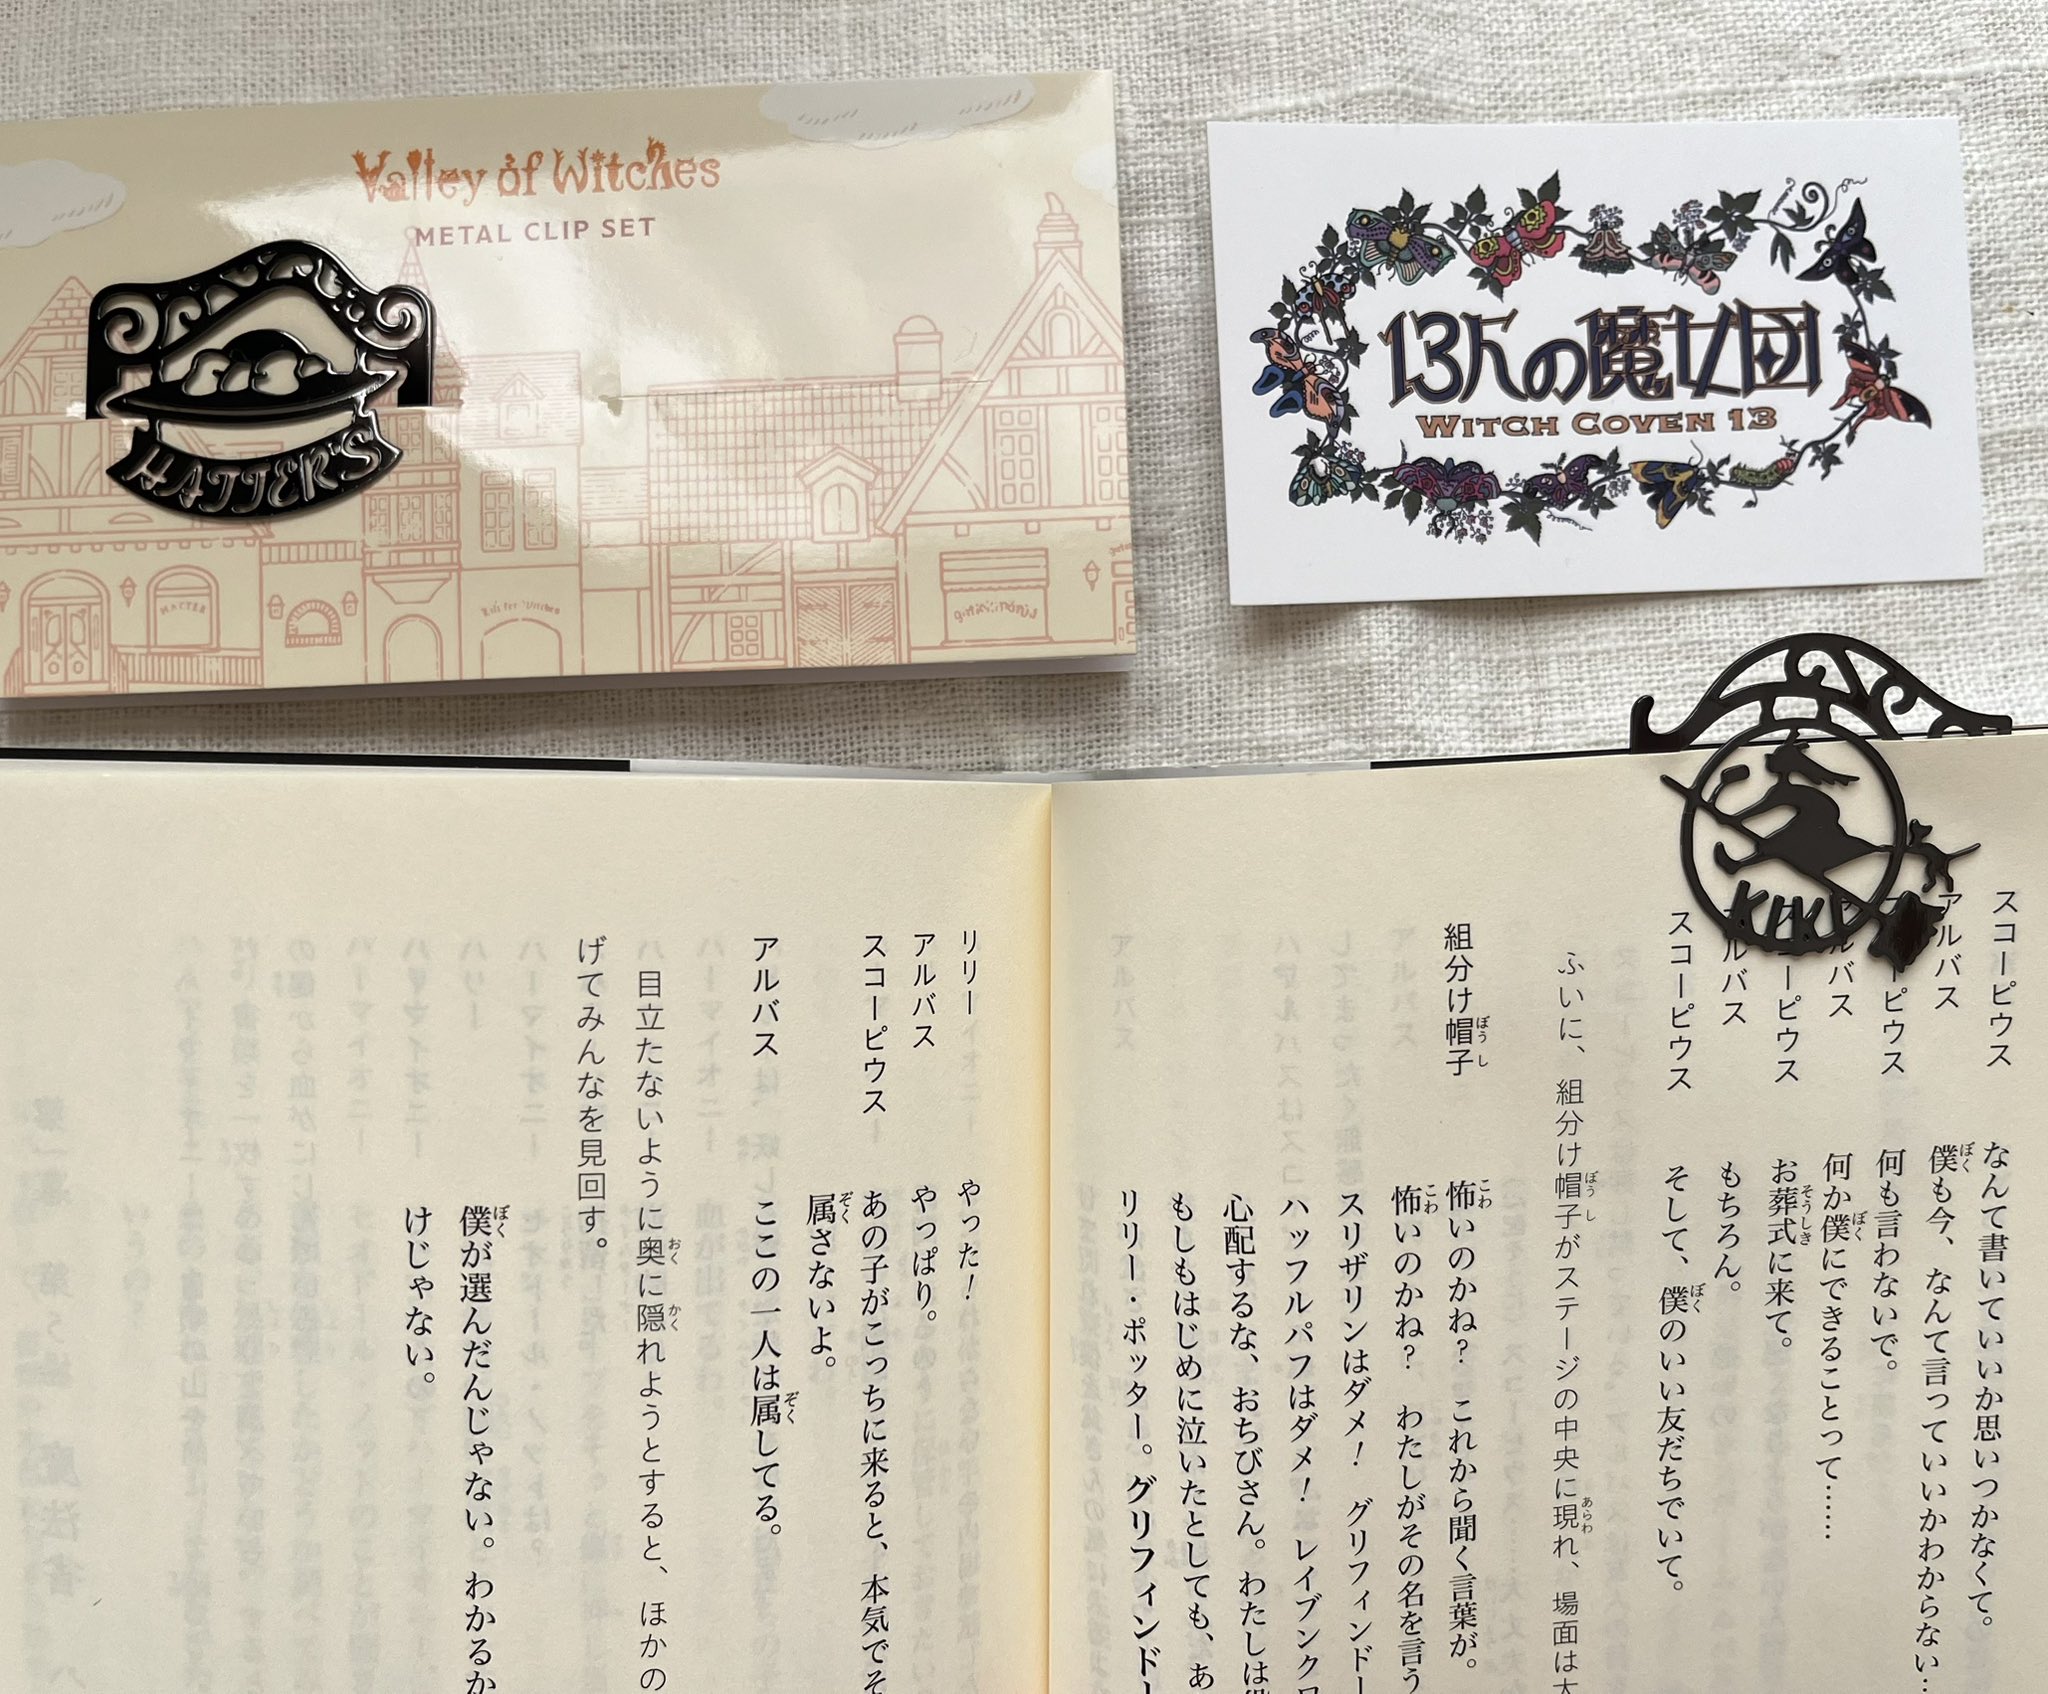 Valley of Witches
METAL CLIP SET
HATTER'S
HATTER
13人の魔女団
WITCH COVEN 13
KIKI
スコーピウス　なんて書いていいか思いつかなくて。
アルバス　僕も今、なんて言っていいかわからない…
何も言わないで。
何か僕にできることって……
お葬式に来て。
もちろん。
スコーピウス　そして、僕のいい友だちでいて。
ふいに、組分け帽子がステージの中央に現れ、場面は
組分け帽子　怖いのかね？　これから聞く言葉が。
怖いのかね？　わたしがその名を言う
スリザリンはダメ！　グリフィンドー
ハッフルパフはダメ！　レイブンク
心配するな、おちびさん。わたしは
もしもはじめに泣いたとしても、あ
リリー・ポッター。グリフィンドー
リリー　やった！
アルバス　やっぱり。
スコーピウス　あの子がこっちに来ると、本気でそ
属さないよ。
アルバス　ここの一人は属してる。
目立たないように奥に隠れようとすると、ほかの
げてみんなを見回す。
僕が選んだんじゃない。わかるか
けじゃない。